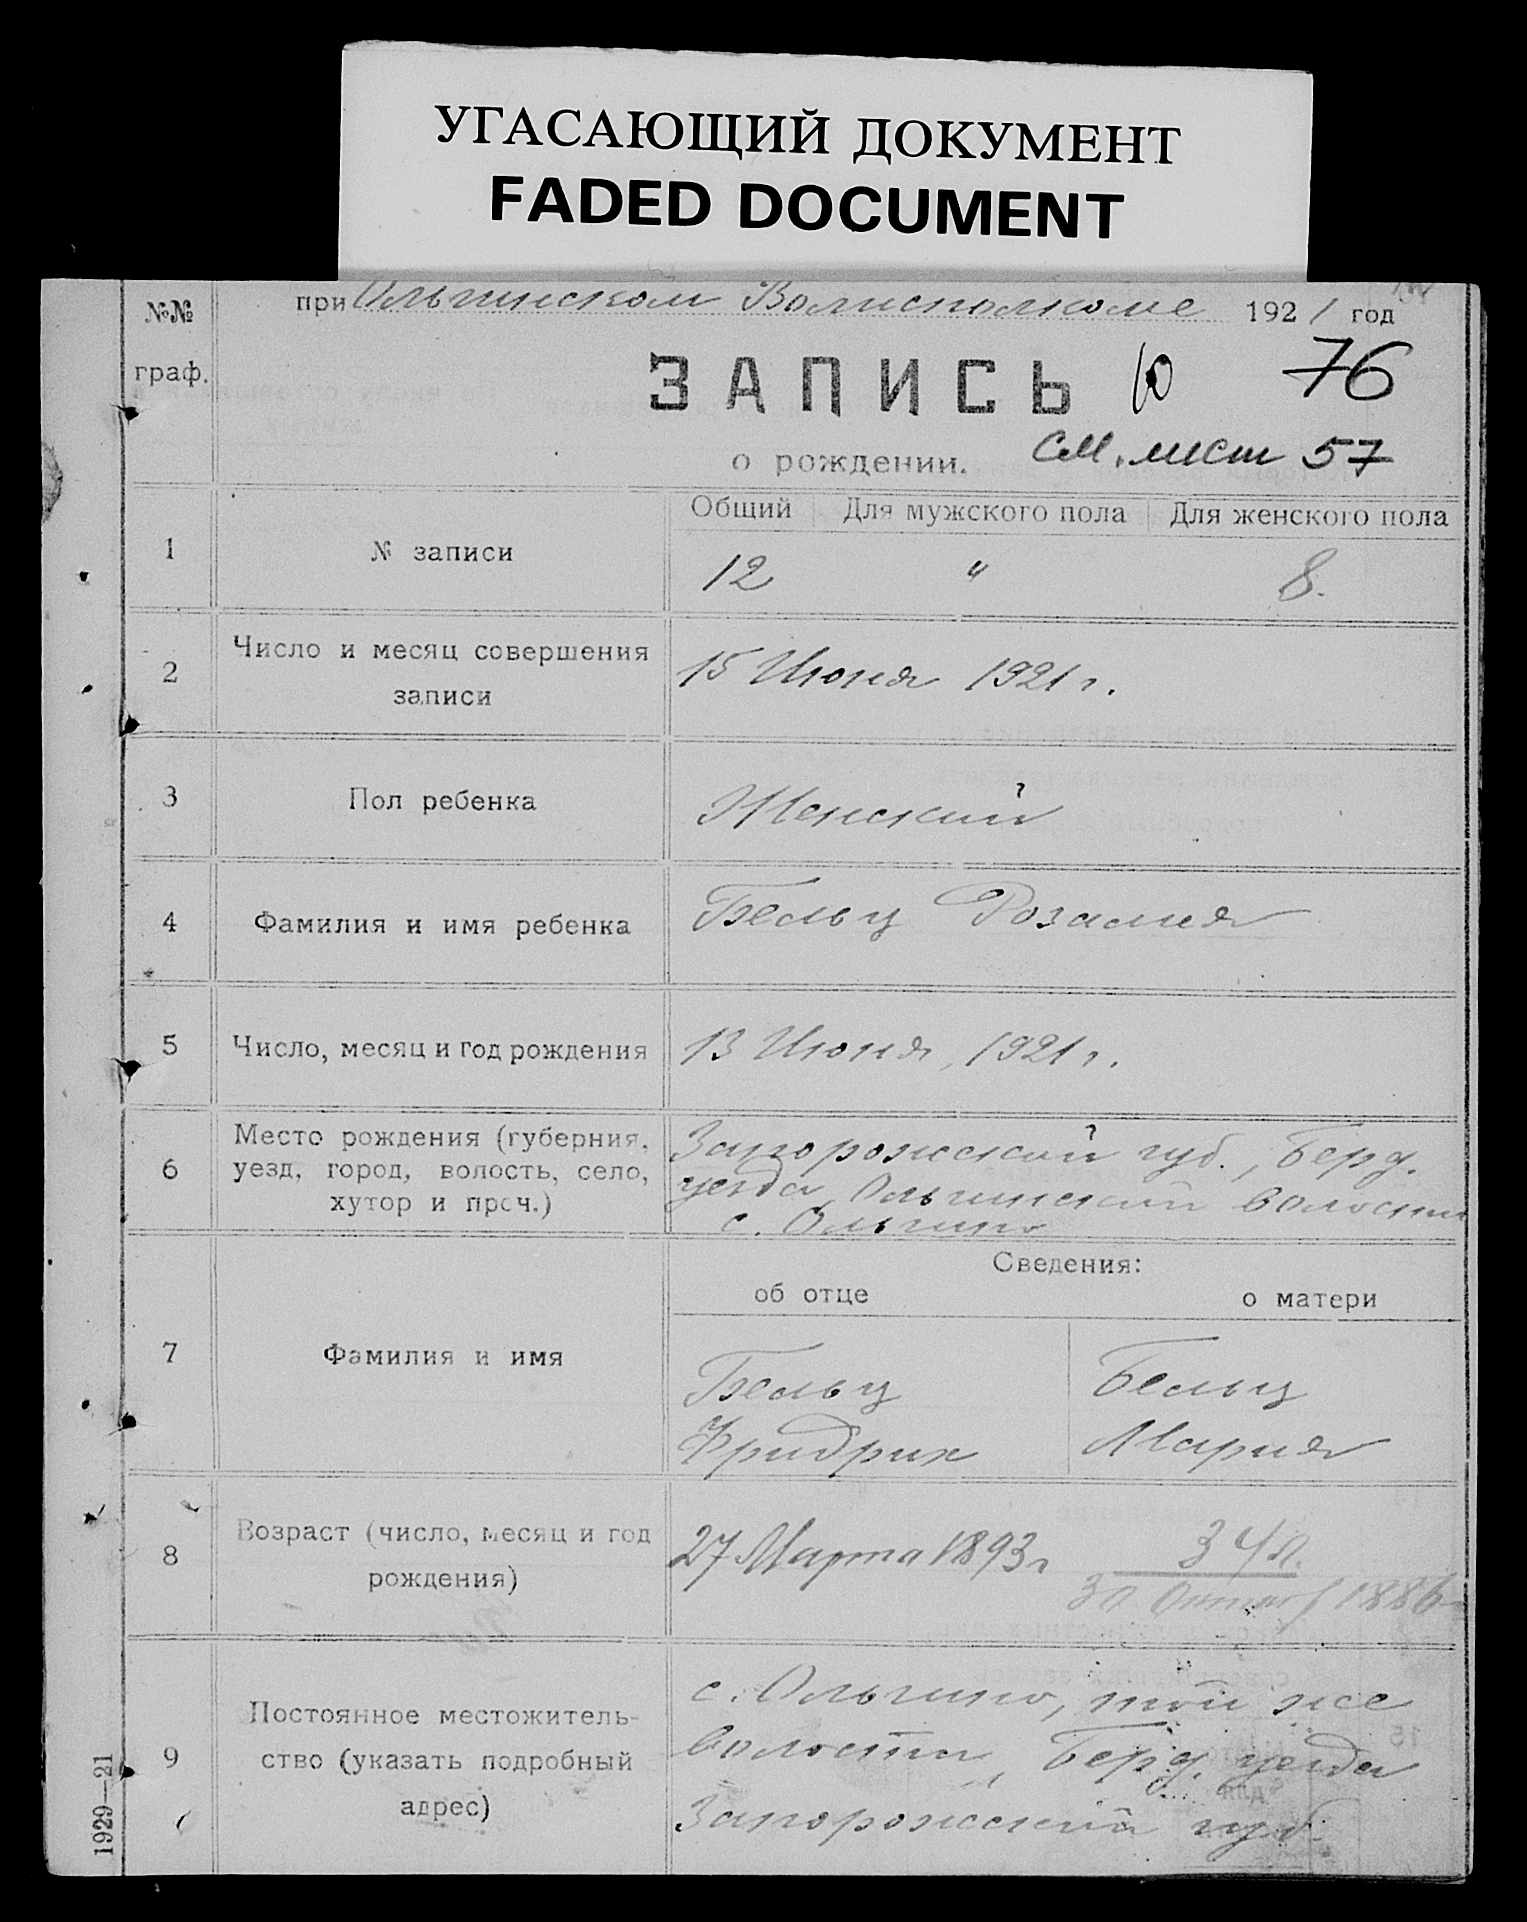 УГАСАЮЩИЙ ДОКУМЕНТ
FADED DOCUMENT
№№ граф.
при Ольгинском Волисполкоме 1921 год
ЗАПИСЬ 76
о рождении. См. лист 57
Общий Для мужского пола Для женского пола
1 № записи 12 " 8.
2 Число и месяц совершения
записи
15 Июня 1921 г.
3 Пол ребенка Женский
4 Фамилия и имя ребенка Бельц Розалия
5 Число, месяц и год рождения 13 Июня, 1921 г.
6 Место рождения (губерния,
уезд, город, волость, село,
хутор и проч.)
Запорожской губ., Берд.
уезда, Ольгинской волости
с. Ольгино
Сведения:
об отце о матери
7 Фамилия и имя
Бельц Бельц
Фридрих Мария
8 Возраст (число, месяц и год
рождения)
27 Марта 1893 г 34 л.
30 1886
9 Постоянное местожитель-
ство (указать подробный
адрес)
с. Ольгино, той же
волости, Берд. уезда
Запорожской губ.
1929—21